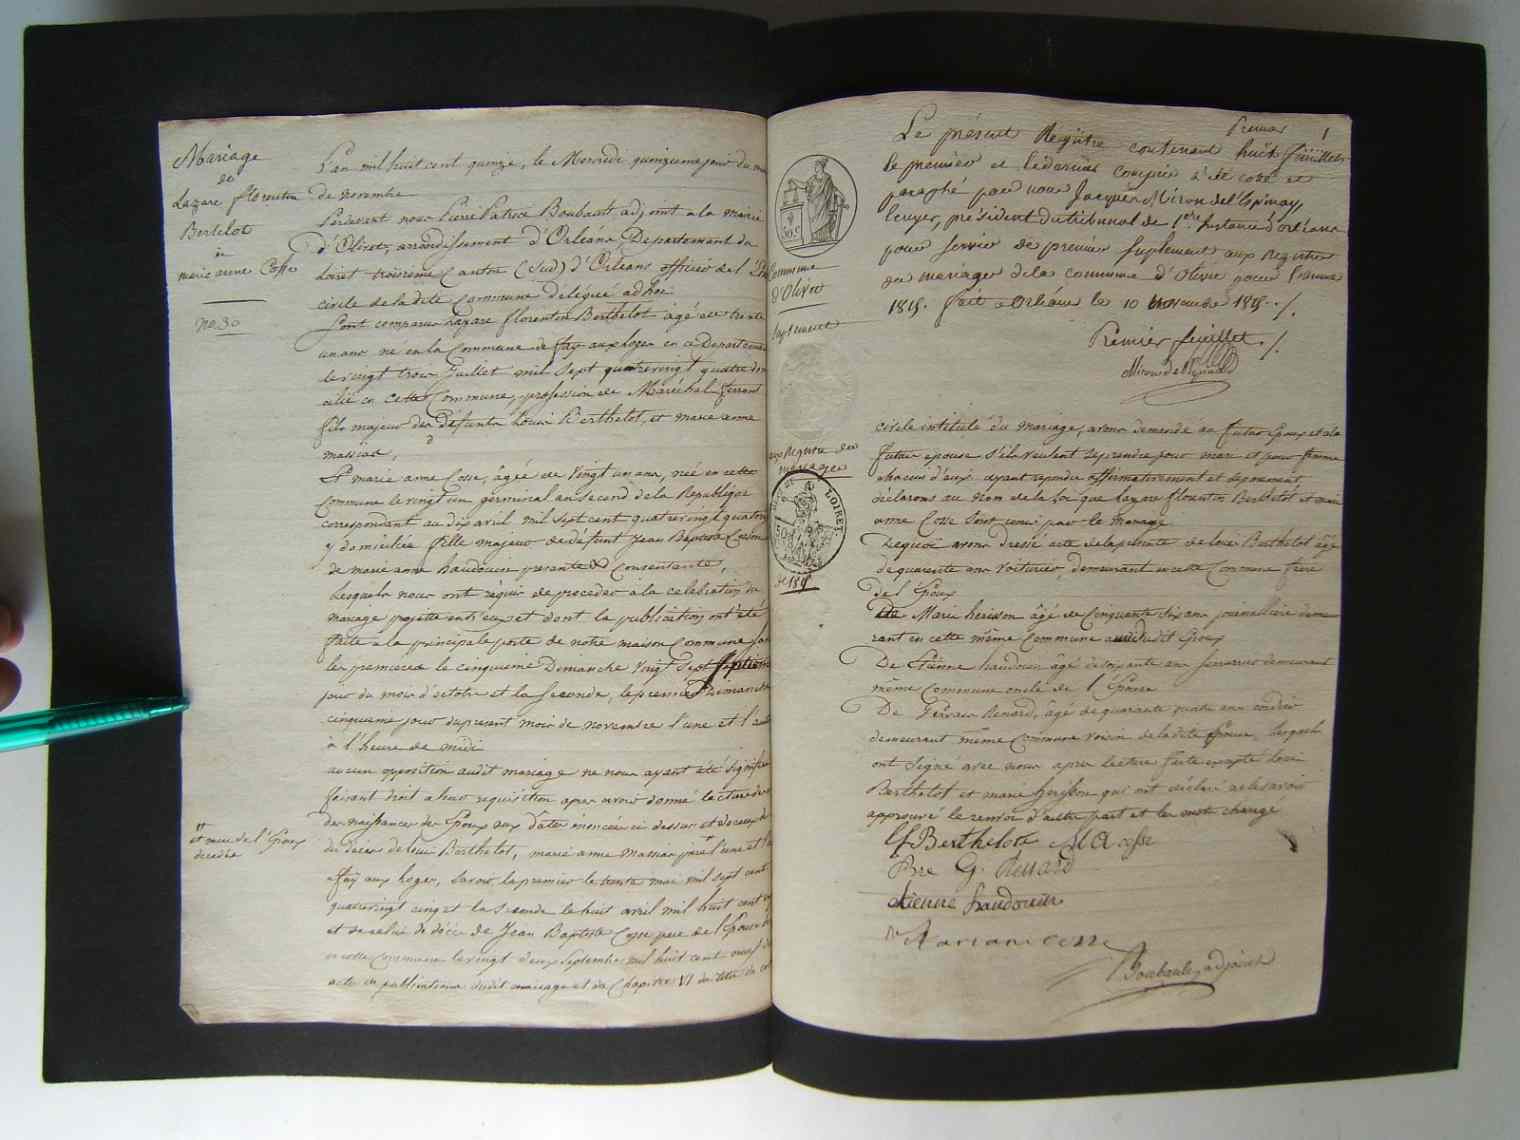 Mariage
de
Lazare florentin
Bertelot
à
marie anne Cosse
no. 30
L'an mil huit cent quinze, le Mercredi quinzieme jour du mois
de novembre
Pardevant nous Pierre Patrice Boubault adjoint a la mairie
d'Olivet, arrondissement d'Orléans, Departement du
Loiret troisieme Canton (Sud) d'Orléans officier de l'Etat
civile de la dite Commune délégué ad hoc
Sont comparus Lazare florentin Berthelot âgé de trente
un ans né en la Commune de fay aux loges en ce Departement
le vingt trois Juillet mil sept quatrevingt quatre domi
cilié en cette Commune, profession de Maréchal ferrant
fils majeur des Défunts Louis Berthelot, et marie anne
massias,
Et marie anne Cosse, âgée de Vingt un ans, née en cette
Commune le vingt un germinal an second de la Republique
correspondant au dix avril mil sept cent quatrevingt quatorze
y domiciliée fille majeur de défunt Jean Baptiste Cosse
de marie anne Baudouin presente et Consentante,
Lesquels nous ont requis de proceder à la celebration du
mariage projetté entr'eux et dont la publication ont été
faite à la principale porte de notre maison Commune
la premiere le cinquieme Dimanche Vingt Sept
jour du mois d'octobre et la Seconde, le premier Dimanche
cinquieme jour du present mois de novembre l'une et l'autre
à l'heure de midi
aucun opposition audit mariage ne nous ayant été signifiée
faisant droit a leur requisition apres avoir donné lecture des
des naissances des Epoux aux dates énoncées ci dessus et de ceux de
du deces de Louis Berthelot, marie anne Massias
a fay aux loges, savoir le premier le trente mai mil sept cent
quatrevingt cinq et la Seconde le huit avril mil huit cent
et de celui de décès de Jean Baptiste Cosse pere de l'Epouse
en cette Commune le vingt deux Septembre mil huit cent
acte de publications dudit mariage et du Chapitre VI du titre du
et mere de l'Epoux
decedée
Premier 1
Le présent Registre contenant huit feuillets
le premier et le dernier compris a été coté et
paraphé par nous Jacques Miron de l'Epinay,
Ecuyer, président du tribunal de 1ere Instance d'orléans
pour servir de premier suplement aux Registres
des mariages de la commune d'Olivet pour l'année
1815. fait a Orléans le 10 novembre 1815. /.
Premier feuillet. /.
Commune
d'Olivet
Suplement
aux Registre des
mariages
LOIRET
de 1815
civile intitulé du mariage, avons demandé au futur Epoux et à la
future epouse s'ils veulent se prendre pour mari et pour femme
chacun d'eux ayant repondu affirmativement et separement
déclarons au nom de la loi que Lazare florentin Berthelot et marie
anne Cosse sont unis par le mariage
De quoi avons dressé acte de la presente de Louis Berthelot âgé
de quarante ans Voiturier, demeurant en cette Commune frere
de l'Epoux
De Marie herisson âgé de Cinquante six ans journalliere deme
rant en cette même Commune dudit Epoux
De Etienne baudouin âgé de soixante ans demeurant
même commune oncle de l'Epouse
De Gervais Renard, âgé de quarante ans
demeurant même Commune voisin de la dite Epouse, lesquels
ont signé avec nous apres lecture faite excepté Louis
Berthelot et marie herisson qui ont déclaré ne le savoir
approuvé le renvoi d'autre part et les mots changé
Lf Berthelot M A Cosse
G. Renard
etienne baudouin
Mariane cosse
Boubault adjoint